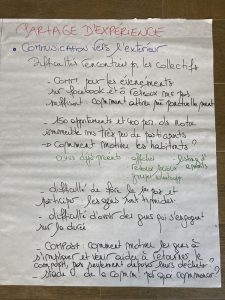 PARTAGE D'EXPÉRIENCE
• COMMUNICATION vers l'extérieur
Difficultés rencontrées par les collectifs
- Comm pour les évènements
sur facebook et réseaux mais pas
suffisant comment attirer plus ponctuellement
- 150 appartements et 400 pers. ds notre
immeuble mais très peu de participants
→ Comment motiver les habitants ?
affiches
réseaux sociaux
groupe whatsapp
- difficulté de faire le et
participer les gens sont timides
- difficulté d'avoir des gens qui s'engagent
sur la durée
- COMPOST : comment motiver les gens à
s'impliquer et venir aider à retourner le
compost, pas seulement déposer leurs déchets ?
stade 0 de la comm. par quoi commencer ?